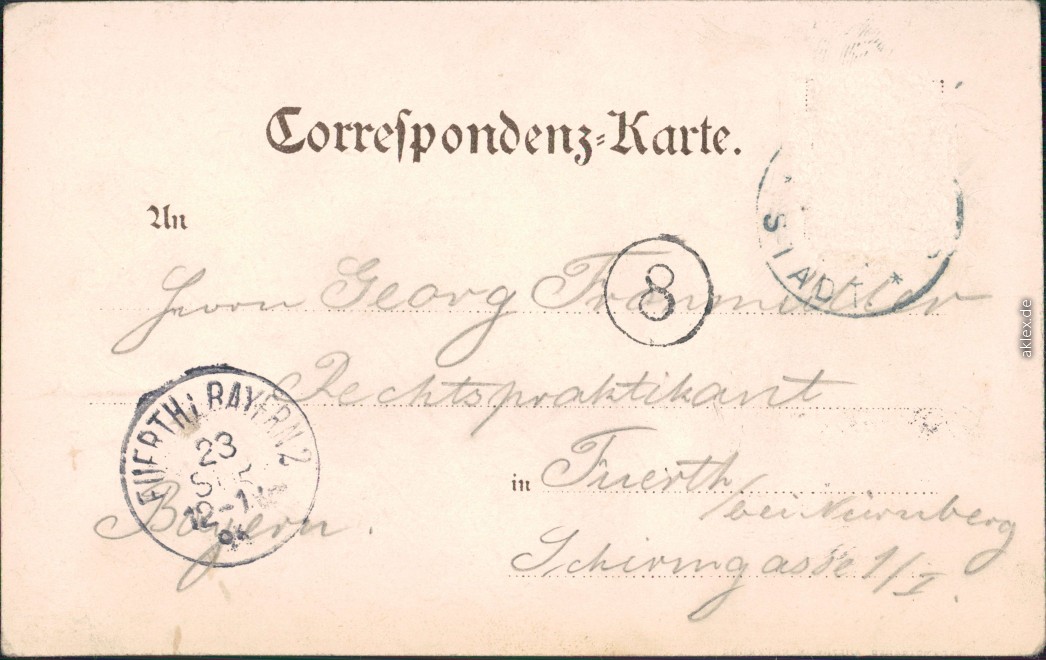 Correspondenz-Karte.
An
Herrn Georg
8
STADT *
Rechtspraktikant
FUERTH i/ BAYERN. 2
23
12-1
in Fuerth
bei Nürnberg
Bayern.
Schirmgasse 1/I.
aklex.de